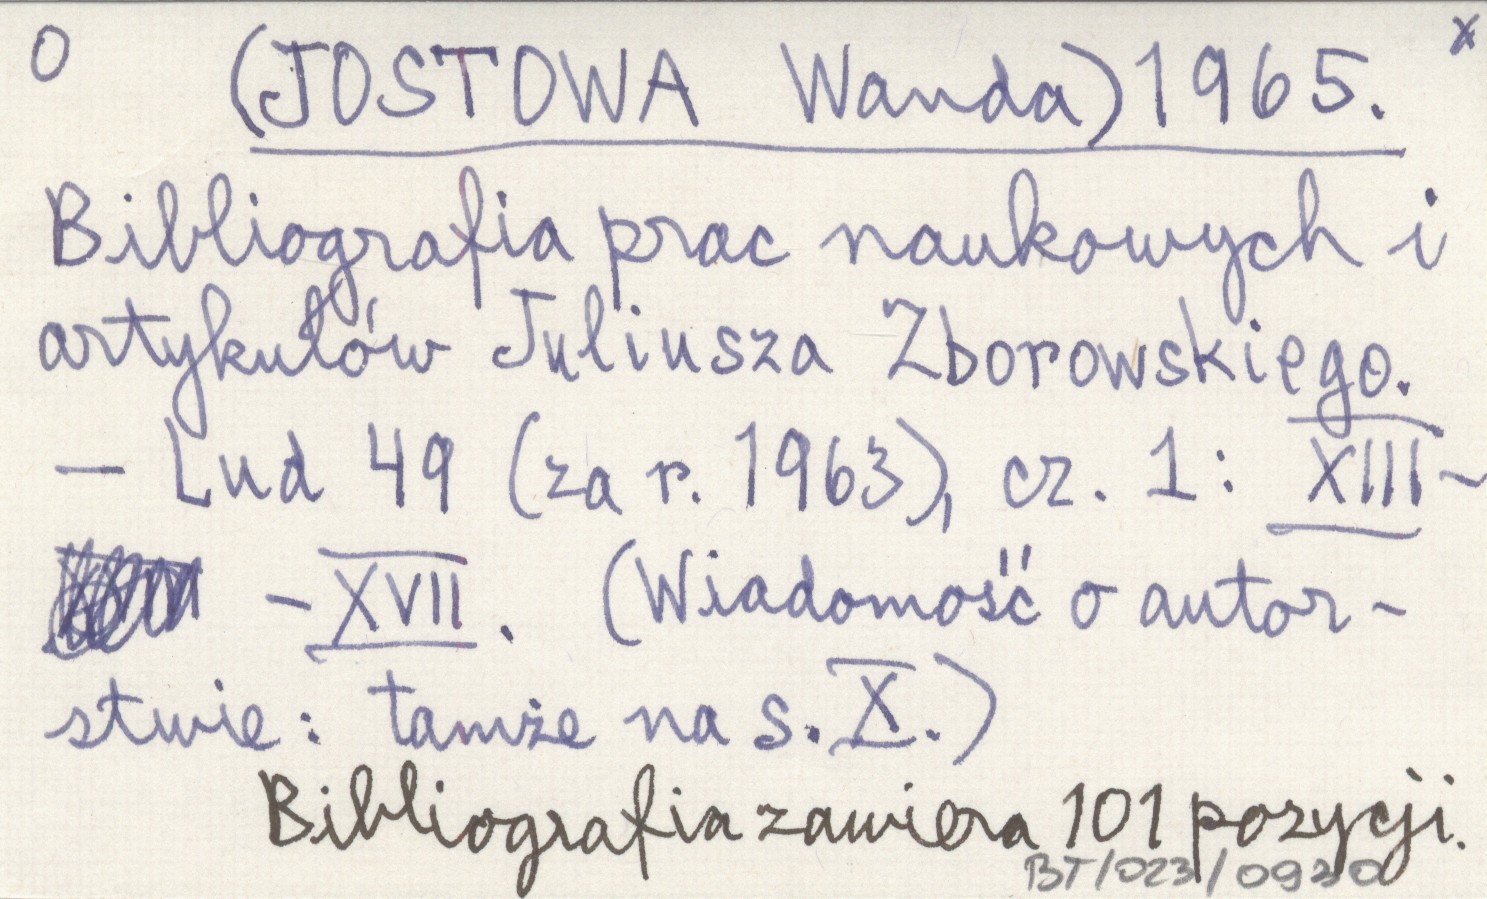 O (JOSTOWA Wanda) 1965. x
Bibliografia prac naukowych i
artykułów Juliusza Zborowskiego.
— Lud 49 (za r. 1963), cz. 1: XIII-
- XVII. (Wiadomość o autor-
stwie: tamże na s. X.)
Bibliografia zawiera 101 pozycji.
BT/023/0930